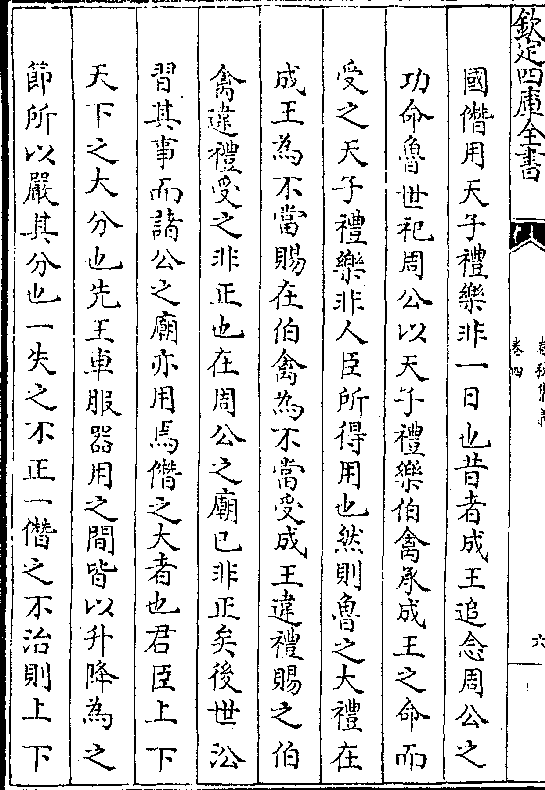 欽定四庫全書
卷四
六
國僭用天子禮樂非一日也昔者成王追念周公之
功命魯世祀周公以天子禮樂伯禽承成王之命而
受之天子禮樂非人臣所得用也然則魯之大禮在
成王為不當賜在伯禽為不當受成王違禮賜之伯
禽違禮受之非正也在周公之廟已非正矣後世沿
習其事而諸公之廟亦用焉僭之大者也君臣上下
天下之大分也先王車服器用之間皆以升降為之
節所以嚴其分也一失之不正一僭之不治則上下